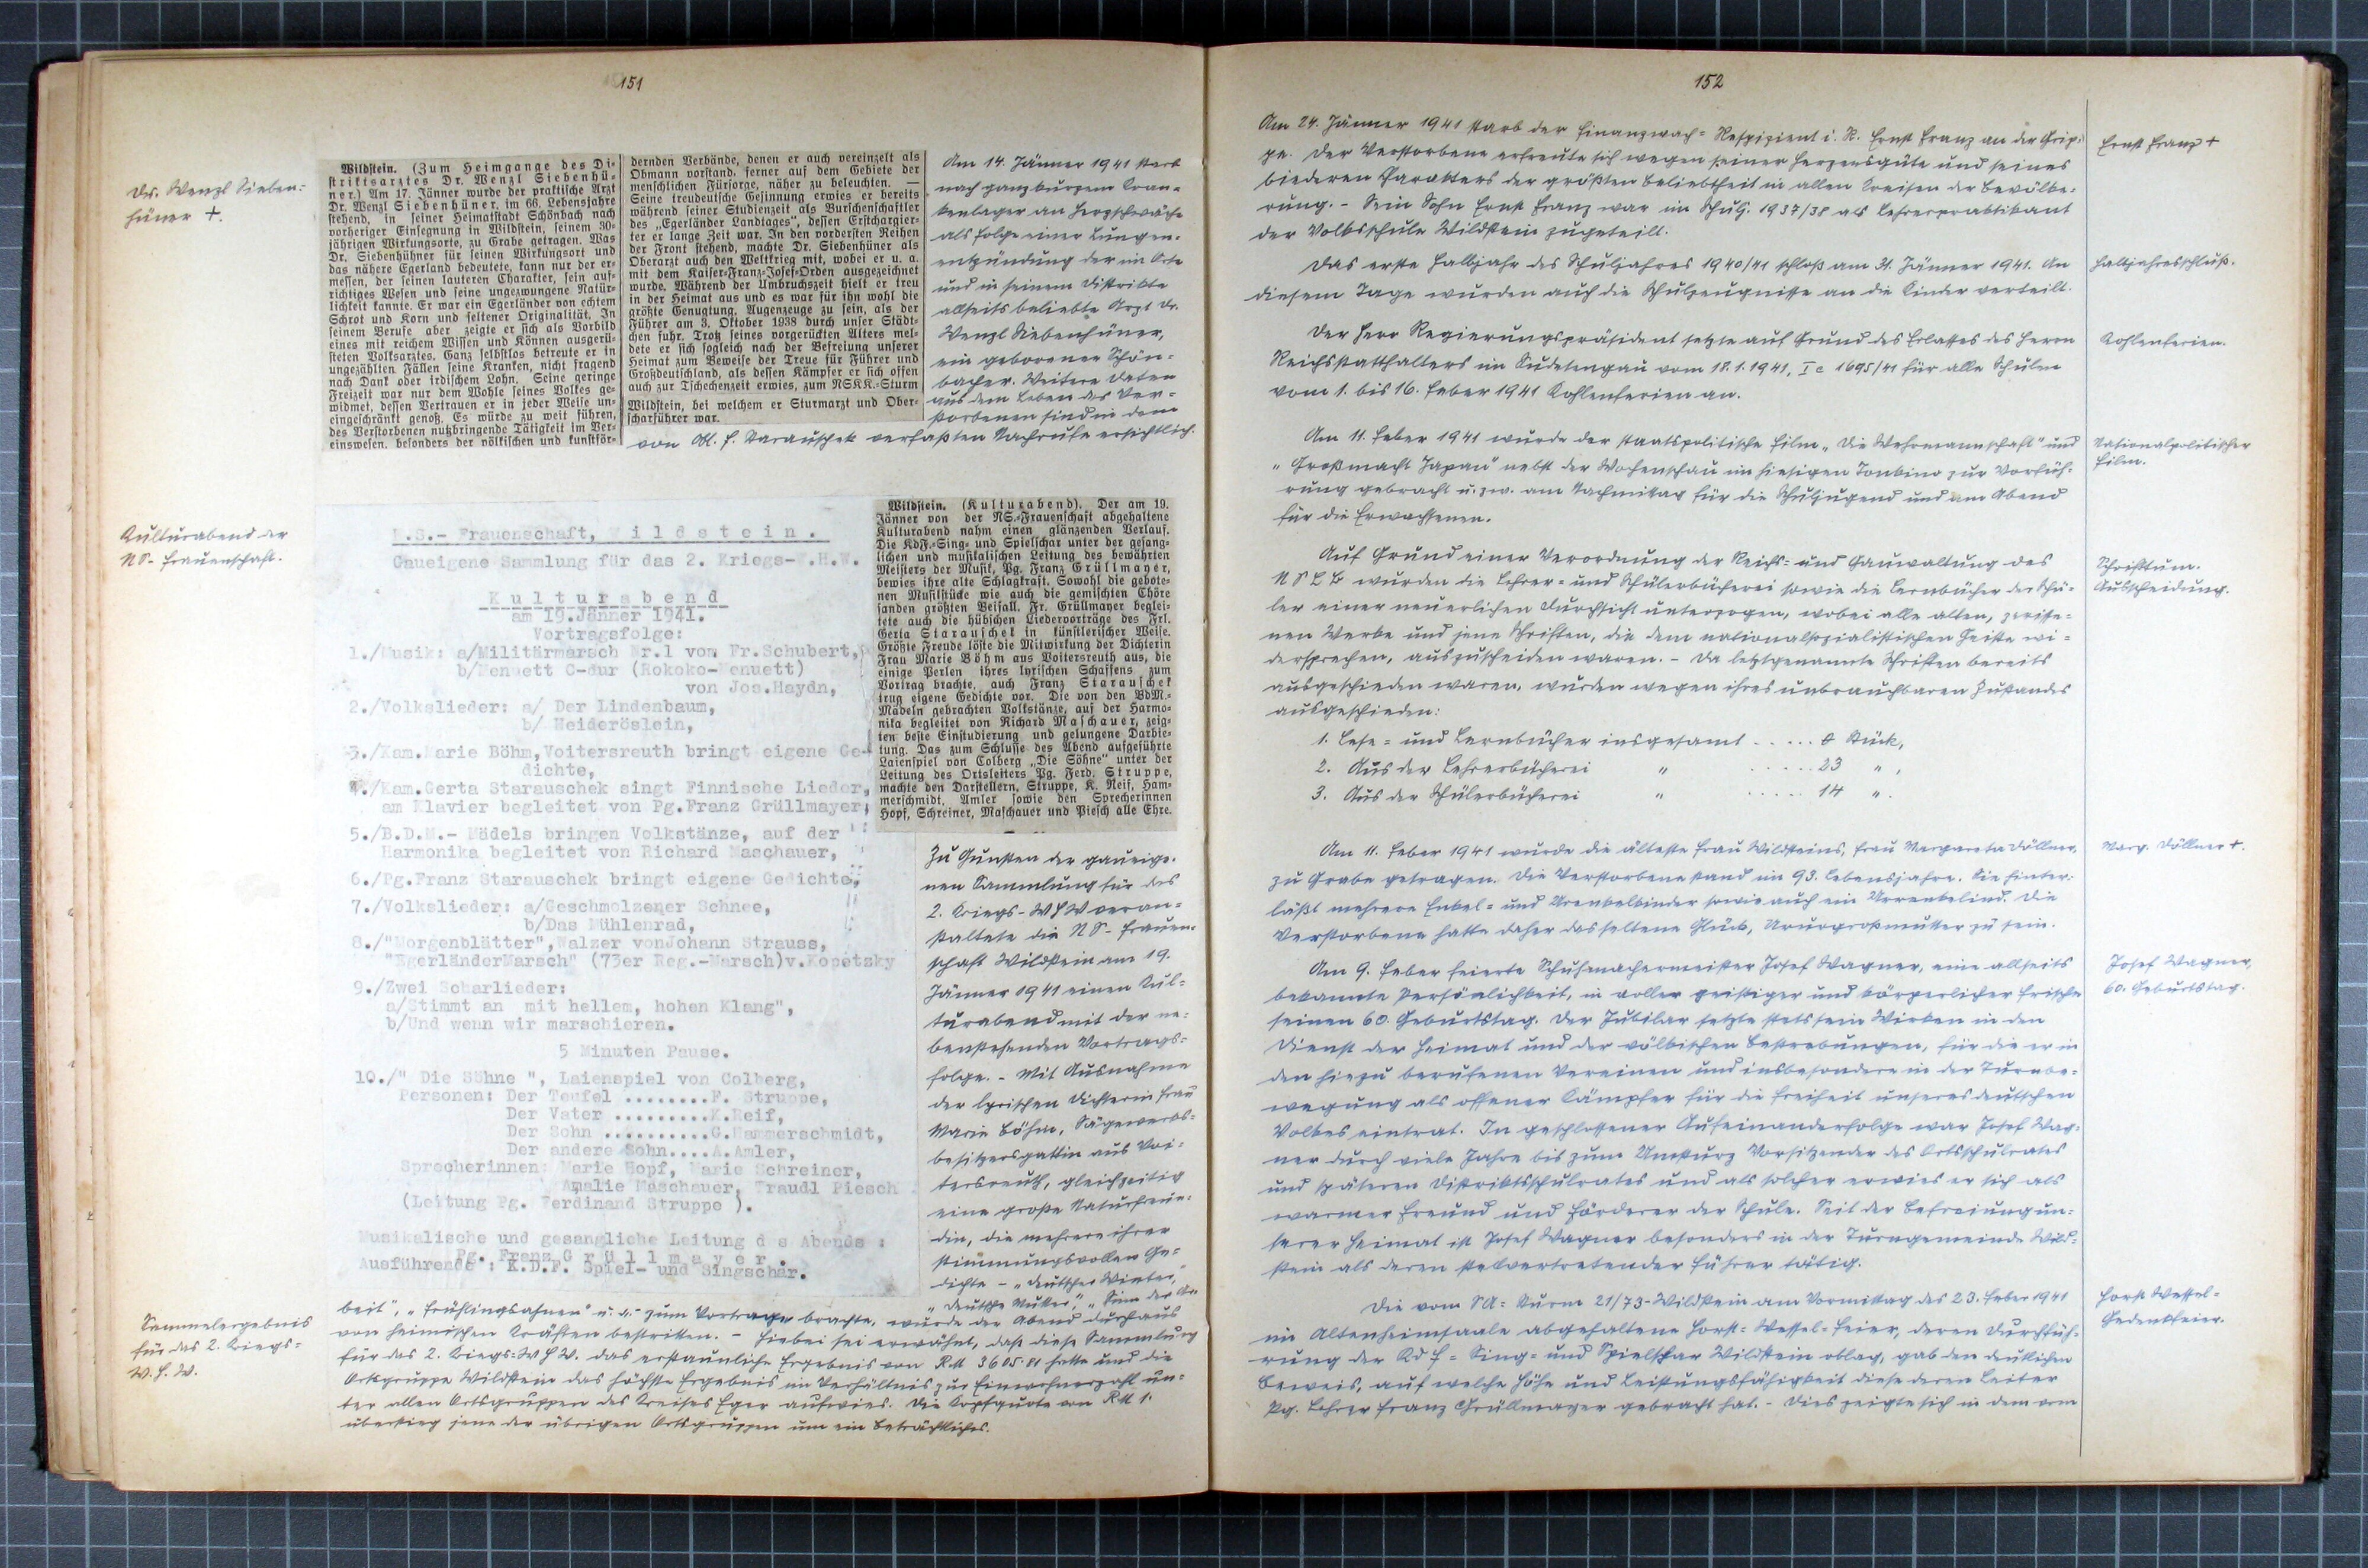 151
Dr. Wenzl Sieben-
hüner †.
Wildstein. (Zum Heimgange des Di-
striktsarztes Dr. Wenzl Siebenhü-
ner.) Am 17. Jänner wurde der praktische Arzt
Dr. Wenzl Siebenhüner, im 66. Lebensjahre
stehend, in seiner Heimatstadt Schönbach nach
vorheriger Einsegnung in Wildstein, seinem 30-
jährigen Wirkungsorte, zu Grabe getragen. Was
Dr. Siebenhühner für seinen Wirkungsort und
das nähere Egerland bedeutete, kann nur der er-
messen, der seinen lauteren Charakter, sein auf-
richtiges Wesen und seine ungezwungene Natür-
lichkeit kannte. Er war ein Egerländer von echtem
Schrot und Korn und seltener Originalität. In
seinem Berufe aber zeigte er sich als Vorbild
eines mit reichem Wissen und Können ausgerü-
steten Volksarztes. Ganz selbstlos betreute er in
ungezählten Fällen seine Kranken, nicht fragend
nach Dank oder irdischem Lohn. Seine geringe
Freizeit war nur dem Wohle seines Volkes ge-
widmet, dessen Vertrauen er in jeder Weise un-
eingeschränkt genoß. Es würde zu weit führen,
des Verstorbenen nutzbringende Tätigkeit im Ver-
einswesen, besonders der völkischen und kunstför-
dernden Verbände, denen er auch vereinzelt als
Obmann vorstand, ferner auf dem Gebiete der
menschlichen Fürsorge, näher zu beleuchten. —
Seine treudeutsche Gesinnung erwies er bereits
während seiner Studienzeit als Burschenschaftler
des „Egerländer Landtages“, dessen Erstchargier-
ter er lange Zeit war. In den vordersten Reihen
der Front stehend, machte Dr. Siebenhüner als
Oberarzt auch den Weltkrieg mit, wobei er u. a.
mit dem Kaiser-Franz-Josef-Orden ausgezeichnet
wurde. Während der Umbruchszeit hielt er treu
in der Heimat aus und es war für ihn wohl die
größte Genugtung, Augenzeuge zu sein, als der
Führer am 3. Oktober 1938 durch unser Städt-
chen fuhr. Trotz seines vorgerückten Alters mel-
dete er sich sogleich nach der Befreiung unserer
Heimat zum Beweise der Treue für Führer und
Großdeutschland, als dessen Kämpfer er sich offen
auch zur Tschechenzeit erwies, zum NSKK.-Sturm
Wildstein, bei welchem er Sturmarzt und Ober-
scharführer war.
Am 14. Jänner 1941 starb
nach ganz kurzem Kran-
kenlager an Herzschwäche
als Folge einer Lungen-
entzündung der im Orte
und in seinem Distrikte
allseits beliebte Arzt Dr.
Wenzl Siebenhüner,
ein geborener Schön-
bacher. Weitere Daten
aus dem Leben des Ver-
storbenen sind in dem
von Obl. F. Starauschek verfaßten Nachrufe ersichtlich.
Kulturabend der
NS-Frauenschaft.
N.S.- Frauenschaft, Wildstein.
Gaueigene Sammlung für das 2. Kriegs-W.H.W.
Kulturabend
am 19.Jänner 1941.
Vortragsfolge:
1./Musik: a/Militärmarsch Nr.1 von Fr.Schubert,
b/Menuett C-dur (Rokoko-Menuett)
von Jos.Haydn,
2./Volkslieder: a/ Der Lindenbaum,
b/ Heideröslein,
3./Kam.Marie Böhm,Voitersreuth bringt eigene Ge-
dichte,
4./Kam.Gerta Starauschek singt Finnische Lieder,
am Klavier begleitet von Pg.Franz Grüllmayer,
5./B.D.M.- Mädels bringen Volkstänze, auf der
Harmonika begleitet von Richard Maschauer,
6./Pg.Franz Starauschek bringt eigene Gedichte,
7./Volkslieder: a/Geschmolzener Schnee,
b/Das Mühlenrad,
8./"Morgenblätter",Walzer vonJohann Strauss,
"EgerländerMarsch" (73er Reg.-Marsch)v.Kopetzky
9./Zwei Scharlieder:
a/Stimmt an mit hellem, hohen Klang",
b/Und wenn wir marschieren.
5 Minuten Pause.
10./" Die Söhne ", Laienspiel von Colberg,
Personen: Der Teufel ........F. Struppe,
Der Vater .........K.Reif,
Der Sohn ..........G.Hammerschmidt,
Der andere Sohn....A.Amler,
Sprecherinnen: Marie Hopf, Marie Schreiner,
Amalie Maschauer, Traudl Piesch
(Leitung Pg. Ferdinand Struppe ).
Musikalische und gesangliche Leitung d s Abends :
Pg. Franz Grüllmayer.
Ausführende : K.D.F. Spiel- und Singschar.
Wildstein. (Kulturabend). Der am 19.
Jänner von der NS-Frauenschaft abgehaltene
Kulturabend nahm einen glänzenden Verlauf.
Die KdF-Sing- und Spielschar unter der gesang-
lichen und musikalischen Leitung des bewährten
Meisters der Musik, Pg. Franz Grüllmayer,
bewies ihre alte Schlagkraft. Sowohl die gebote-
nen Musikstücke wie auch die gemischten Chöre
fanden größten Beifall. Fr. Grüllmayer beglei-
tete auch die hübschen Liedervorträge des Frl.
Gerta Starauschek in künstlerischer Weise.
Größte Freude löste die Mitwirkung der Dichterin
Frau Marie Böhm aus Voitersreuth aus, die
einige Perlen ihres lyrischen Schaffens zum
Vortrag brachte, auch Franz Starauschek
trug eigene Gedichte vor. Die von den BdM.-
Mädeln gebrachten Volkstänze, auf der Harmo-
nika begleitet von Richard Maschauer, zeig-
ten beste Einstudierung und gelungene Darbie-
tung. Das zum Schlusse des Abend aufgeführte
Laienspiel von Colberg „Die Söhne“ unter der
Leitung des Ortsleiters Pg. Ferd. Struppe,
machte den Darstellern, Struppe, K. Reif, Ham-
merschmidt, Amler sowie den Sprecherinnen
Hopf, Schreiner, Maschauer und Piesch alle Ehre.
Zu Gunsten der gaueige-
nen Sammlung für das
2. Kriegs-WHW veran-
staltete die NS-Frauen-
schaft Wildstein am 19.
Jänner 1941 einen Kul-
turabend mit der ne-
benstehenden Vortrags-
folge. - Mit Ausnahme
der lyrischen Dichterin Frau
Marie Böhm, Sägewerks-
besitzersgattin aus Voi-
tersreuth, gleichzeitig
eine große Naturfreun-
din, die mehrere ihrer
stimmungsvollen Ge-
dichte - „Deutscher Winter,"
„Deutsche Mutter", „Sinn der Ar-
beit", „Frühlingsahnen" u. a. - zum Vortrage brachte, wurde der Abend durchaus
von heimischen Kräften bestritten. - Hiebei sei erwähnt, daß diese Sammlung
für das 2. Kriegs-WHW. das erstaunliche Ergebnis von RM 3605.81 hatte und die
Ortsgruppe Wildstein das höchste Ergebnis im Verhältnis zur Einwohnerzahl un-
ter allen Ortsgruppen des Kreises Eger aufwies. Die Kopfquote von RM 1.
überstieg jene der übrigen Ortsgruppen um ein Beträchtliches.
Sammelergebnis
für das 2. Kriegs-
W.H.W.
152
Am 24. Jänner 1941 starb der Finanzwach-Respizient i. R. Ernst Franz an der Grip-
pe. Der Verstorbene erfreute sich wegen seiner Herzensgüte und seines
biederen Charakters der größten Beliebtheit in allen Kreisen der Bevölke-
rung. - Sein Sohn Ernst Franz war im Schulj. 1937/38 als Lehrerpraktikant
der Volksschule Wildstein zugeteilt.
Ernst Franz †
Das erste Halbjahr des Schuljahres 1940/41 schloß am 31. Jänner 1941. An
diesem Tage wurden auch die Schulzeugnisse an die Kinder verteilt.
Halbjahresschluß.
Der Herr Regierungspräsident setzte auf Grund des Erlasses des Herrn
Reichsstatthalters im Sudetengau vom 18.1.1941, I c 1695/41 für alle Schulen
vom 1. bis 16. Feber 1941 Kohlenferien an.
Kohlenferien.
Am 11. Feber 1941 wurde der staatspolitische Film „Die Wehrmannschaft" und
„Großmacht Japan" nebst der Wochenschau im hiesigen Tonkino zur Vorfüh-
rung gebracht u. zw. am Nachmittag für die Schuljugend und am Abend
für die Erwachsenen.
Nationalpolitischer
Film.
Auf Grund einer Verordnung der Reichs- und Gauwaltung des
NSLB wurden die Lehrer- und Schülerbücherei sowie die Lernbücher der Schü-
ler einer neuerlichen Durchsicht unterzogen, wobei alle alten, zerrisse-
nen Werke und jene Schriften, die dem nationalsozialistischen Geiste wi-
dersprechen, auszuscheiden waren. - Da letztgenannte Schriften bereits
ausgeschieden waren, wurden wegen ihres unbrauchbaren Zustandes
ausgeschieden:
Schrifttum.
Ausscheidung.
1. Lese- und Lernbücher insgesamt ..... 0 Stück,
2. Aus der Lehrerbücherei " ..... 23 ",
3. Aus der Schülerbücherei " ..... 14 ".
Am 11. Feber 1941 wurde die älteste Frau Wildsteins, Frau Margareta Döllner,
zu Grabe getragen. Die Verstorbene stand im 93. Lebensjahre. Sie hinter-
läßt mehrere Enkel- und Urenkelkinder sowie auch ein Ururenkelind. Die
Verstorbene hatte daher das seltene Glück, Ururgroßmutter zu sein.
Marg. Döllner †.
Am 9. Feber feierte Schuhmachermeister Josef Wagner, eine allseits
bekannte Persönlichkeit, in voller geistiger und körperlicher Frische
seinen 60. Geburtstag. Der Jubilar setzte stets sein Wirken in den
Dienst der Heimat und der völkischen Bestrebungen, für die er in
den hiezu berufenen Vereinen und insbesondere in der Turnbe-
wegung als offener Kämpfer für die Freiheit unseres deutschen
Volkes eintrat. In geschlossener Aufeinanderfolge war Josef Wag-
ner durch viele Jahre bis zum Umsturz Vorsitzender des Ortsschulrates
und späteren Distriktsschulrates und als solcher erwies er sich als
warmer Freund und Förderer der Schule. Seit der Befreiung un-
serer Heimat ist Josef Wagner besonders in der Turngemeinde Wild-
stein als deren stellvertretender Führer tätig.
Josef Wagner,
60. Geburtstag.
Die vom SA-Sturm 21/73-Wildstein am Vormittag des 23. Feber 1941
im Altenheimsaale abgehaltene Horst-Wessel-Feier, deren Durchfüh-
rung der KdF-Sing- und Spielschar Wildstein oblag, gab den deutlichen
Beweis, auf welche Höhe und Leistungsfähigkeit diese deren Leiter
Pg. Lehrer Franz Grüllmayer gebracht hat. - Dies zeigte sich in dem vom
Horst Wessel-
Gedenkfeier.